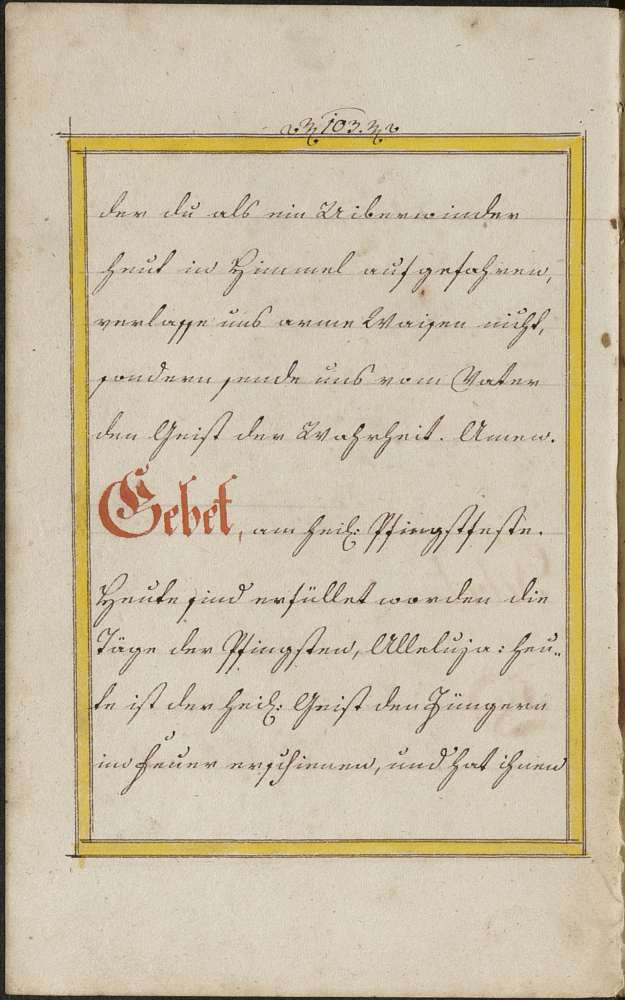 103.
der du als ein Uiberwinder
heut in Himmel aufgefahren,
verlasse uns arme Waisen nicht,
sondern sende uns vom Vater
den Geist der Wahrheit. Amen.
Gebet, am heil: Pfingstfeste.
Heute sind erfüllet worden die
Täge der Pfingsten, Alleluja: heu„
te ist der heil: Geist den Jüngern
im Feuer erschienen, und hat ihnen